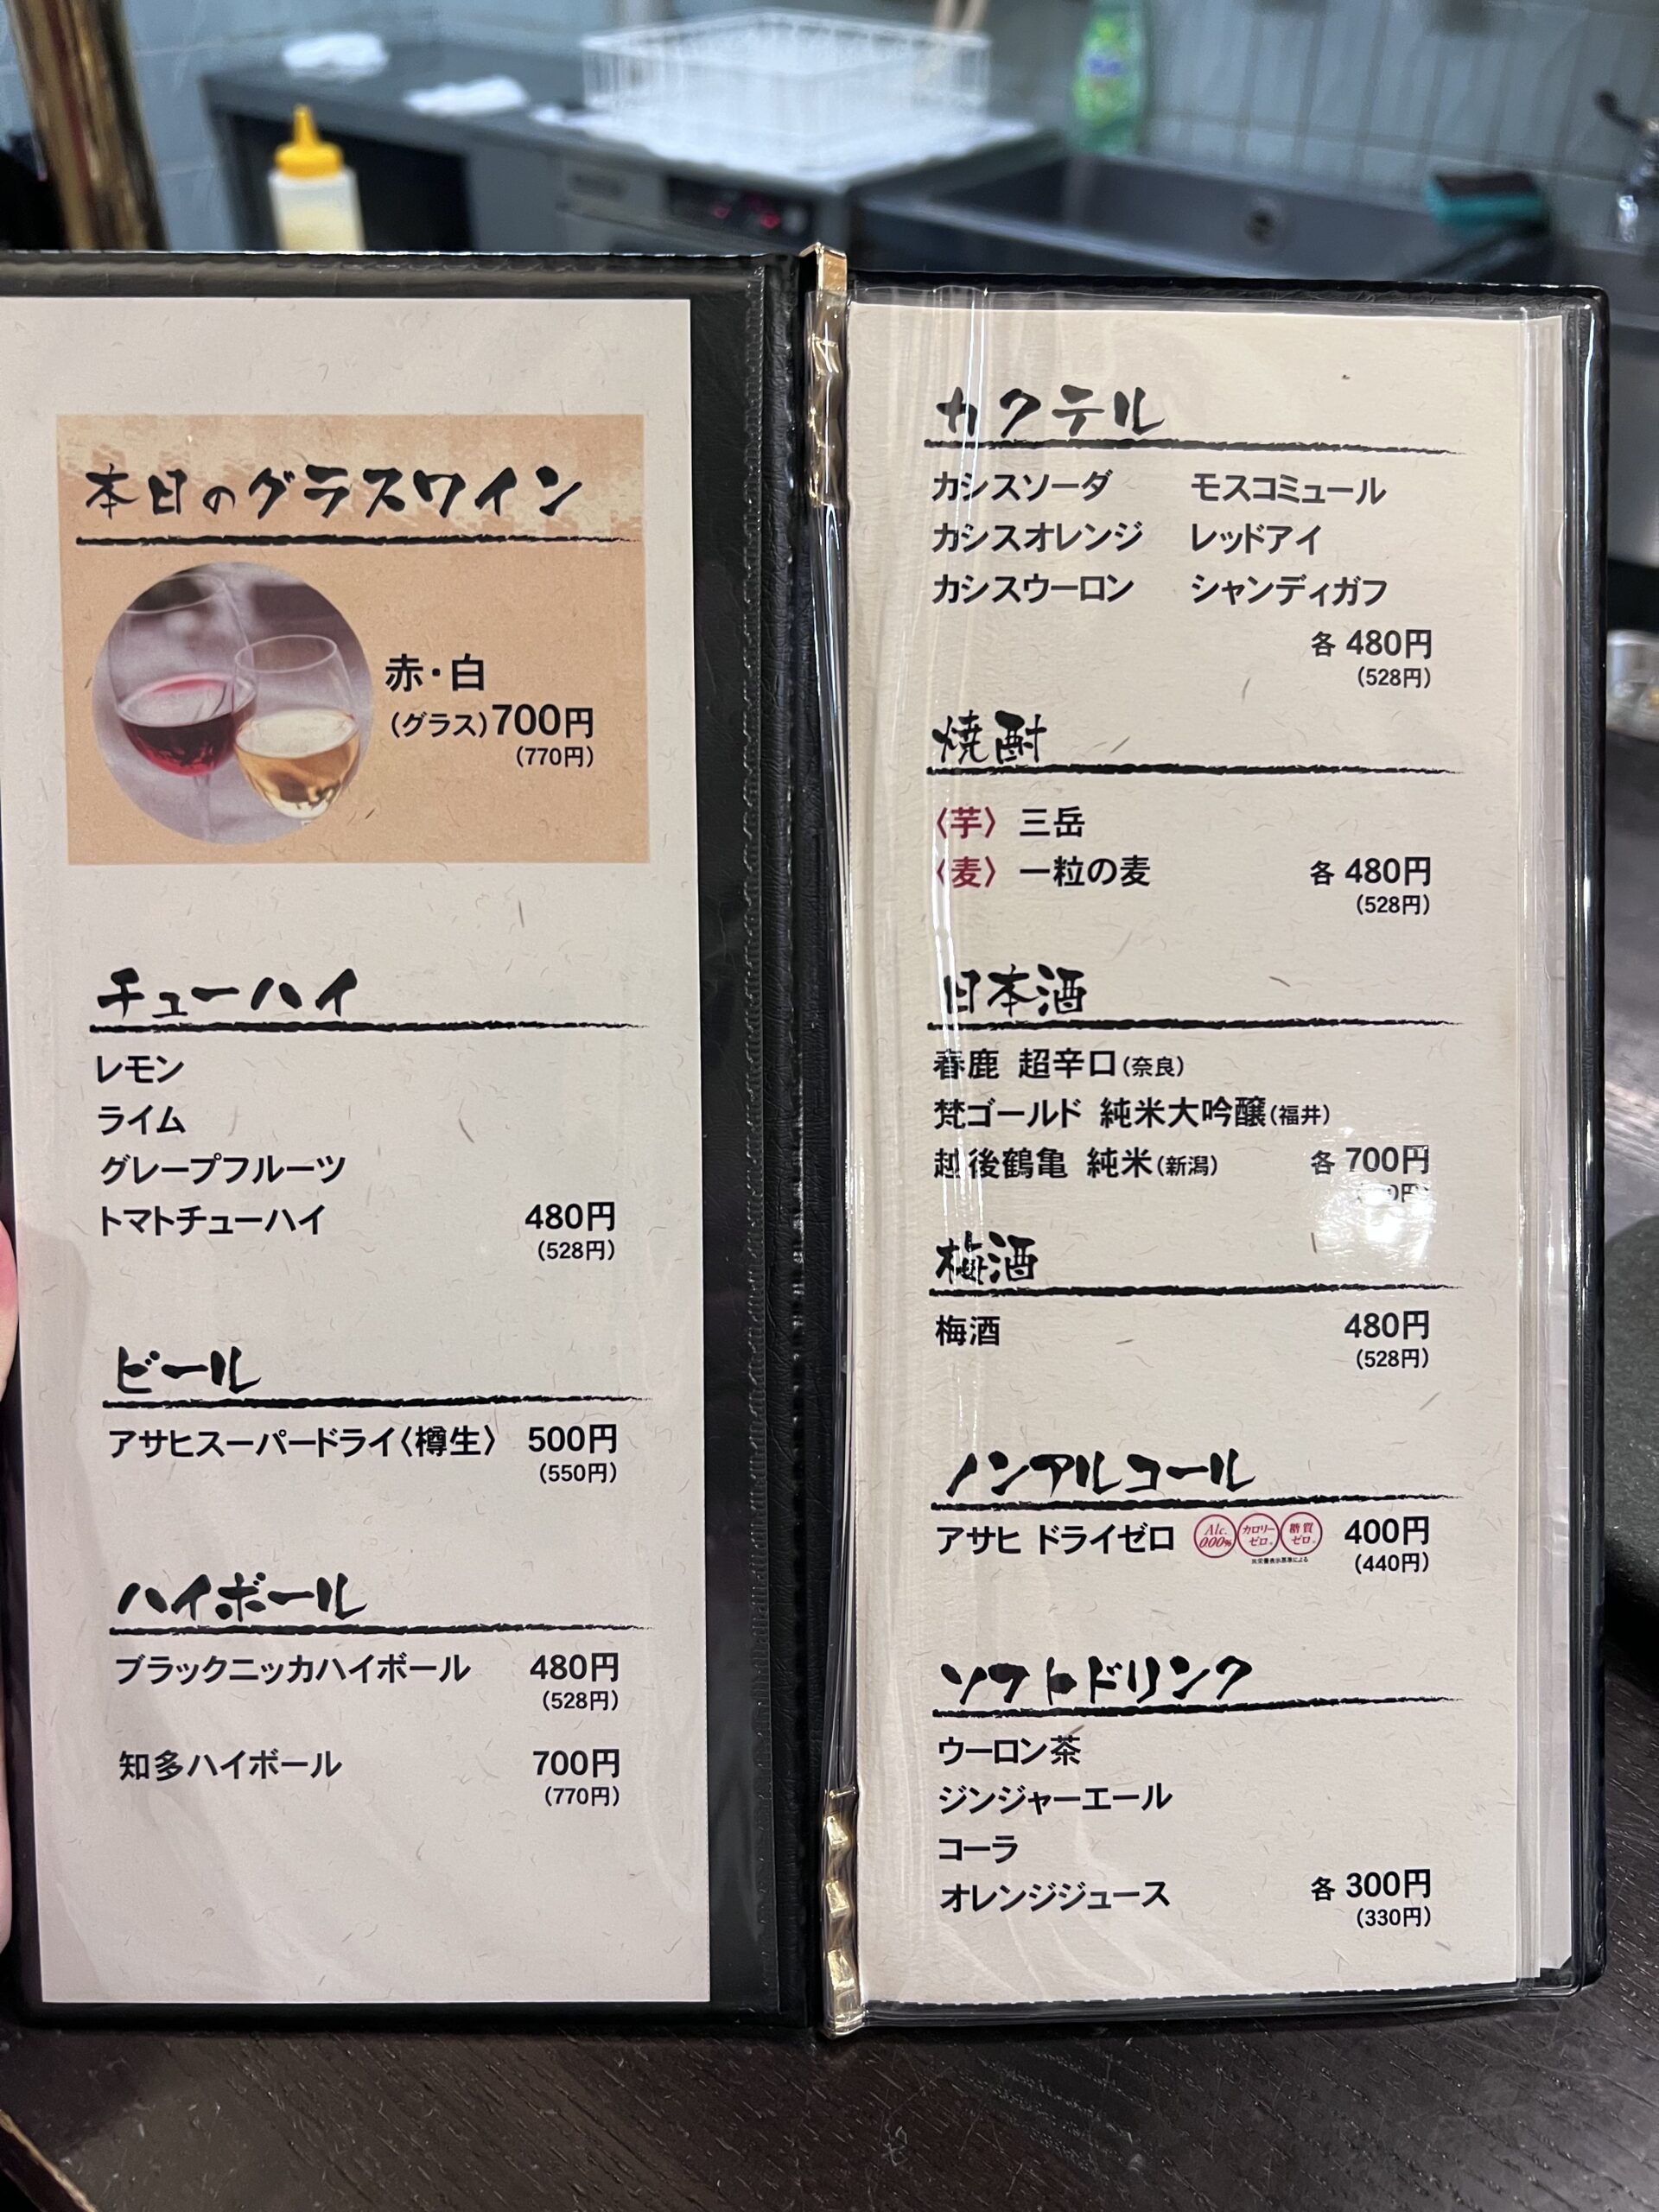 本日のグラスワイン
赤・白
(グラス)700円
(770円)
チューハイ
レモン
ライム
グレープフルーツ
トマトチューハイ 480円
(528円)
ビール
アサヒスーパードライ〈樽生〉 500円
(550円)
ハイボール
ブラックニッカハイボール 480円
(528円)
知多ハイボール 700円
(770円)
カクテル
カシスソーダ モスコミュール
カシスオレンジ レッドアイ
カシスウーロン シャンディガフ
各 480円
(528円)
焼酎
〈芋〉 三岳
〈麦〉 一粒の麦 各 480円
(528円)
日本酒
春鹿 超辛口(奈良)
梵ゴールド 純米大吟醸(福井)
越後鶴亀 純米(新潟) 各 700円
梅酒
梅酒 480円
(528円)
ノンアルコール
アサヒ ドライゼロ Alc. 0.00% カロリーゼロ 糖質ゼロ 400円
(440円)
ソフトドリンク
ウーロン茶
ジンジャーエール
コーラ
オレンジジュース 各 300円
(330円)